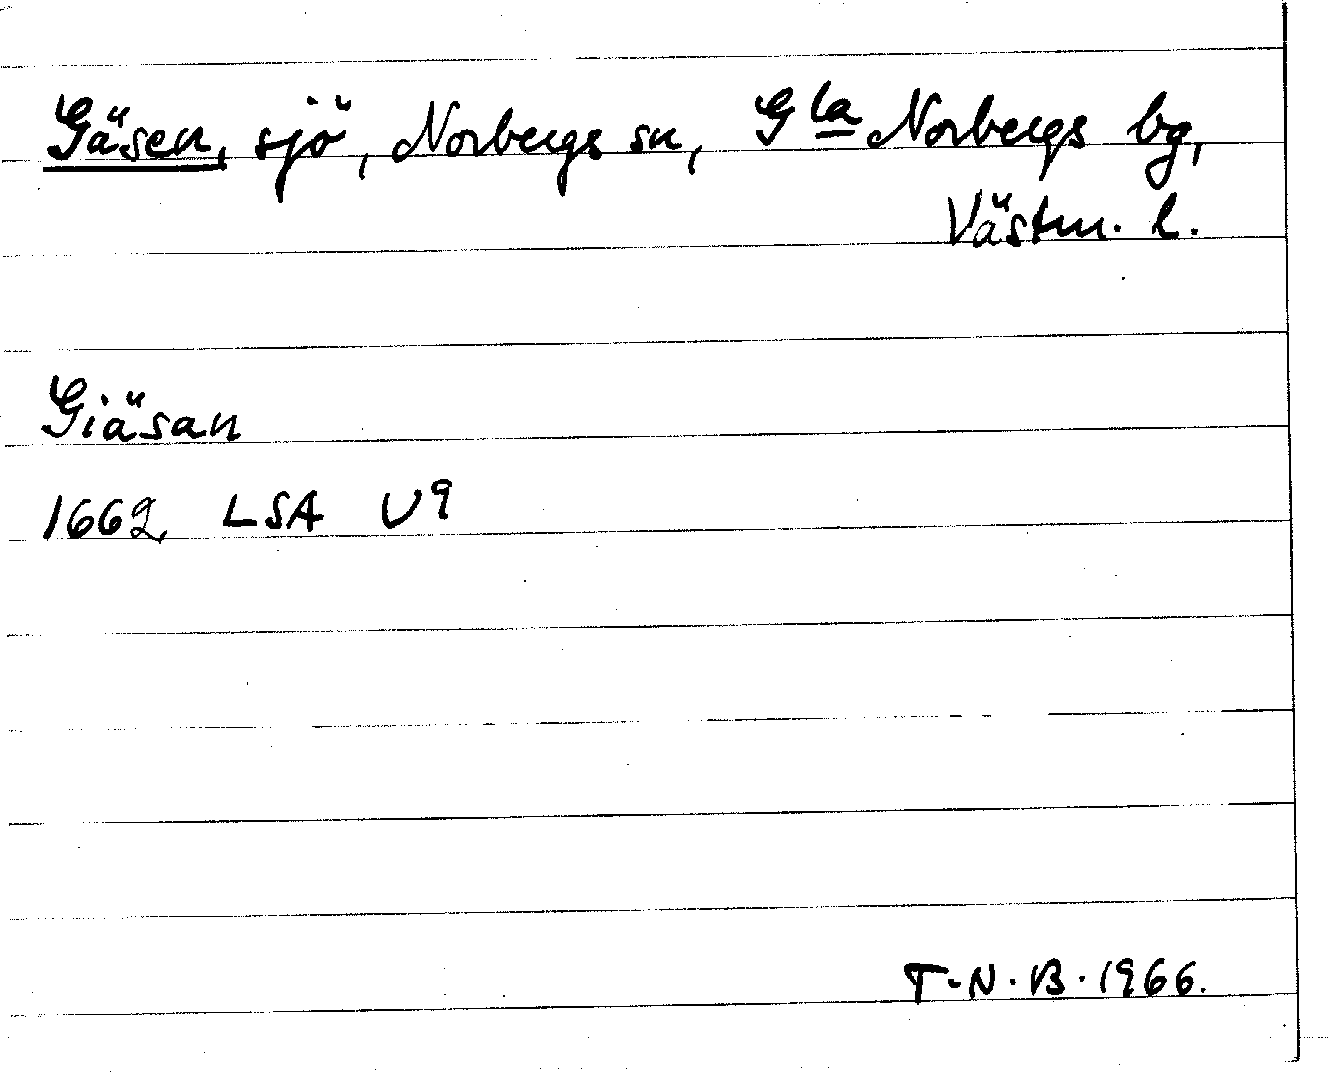 Gäsen, sjö, Norbergs sn, Gla Norbergs bg,
Västm. l.
Giäsan
1662, LSA U9
T.N.B. 1966.